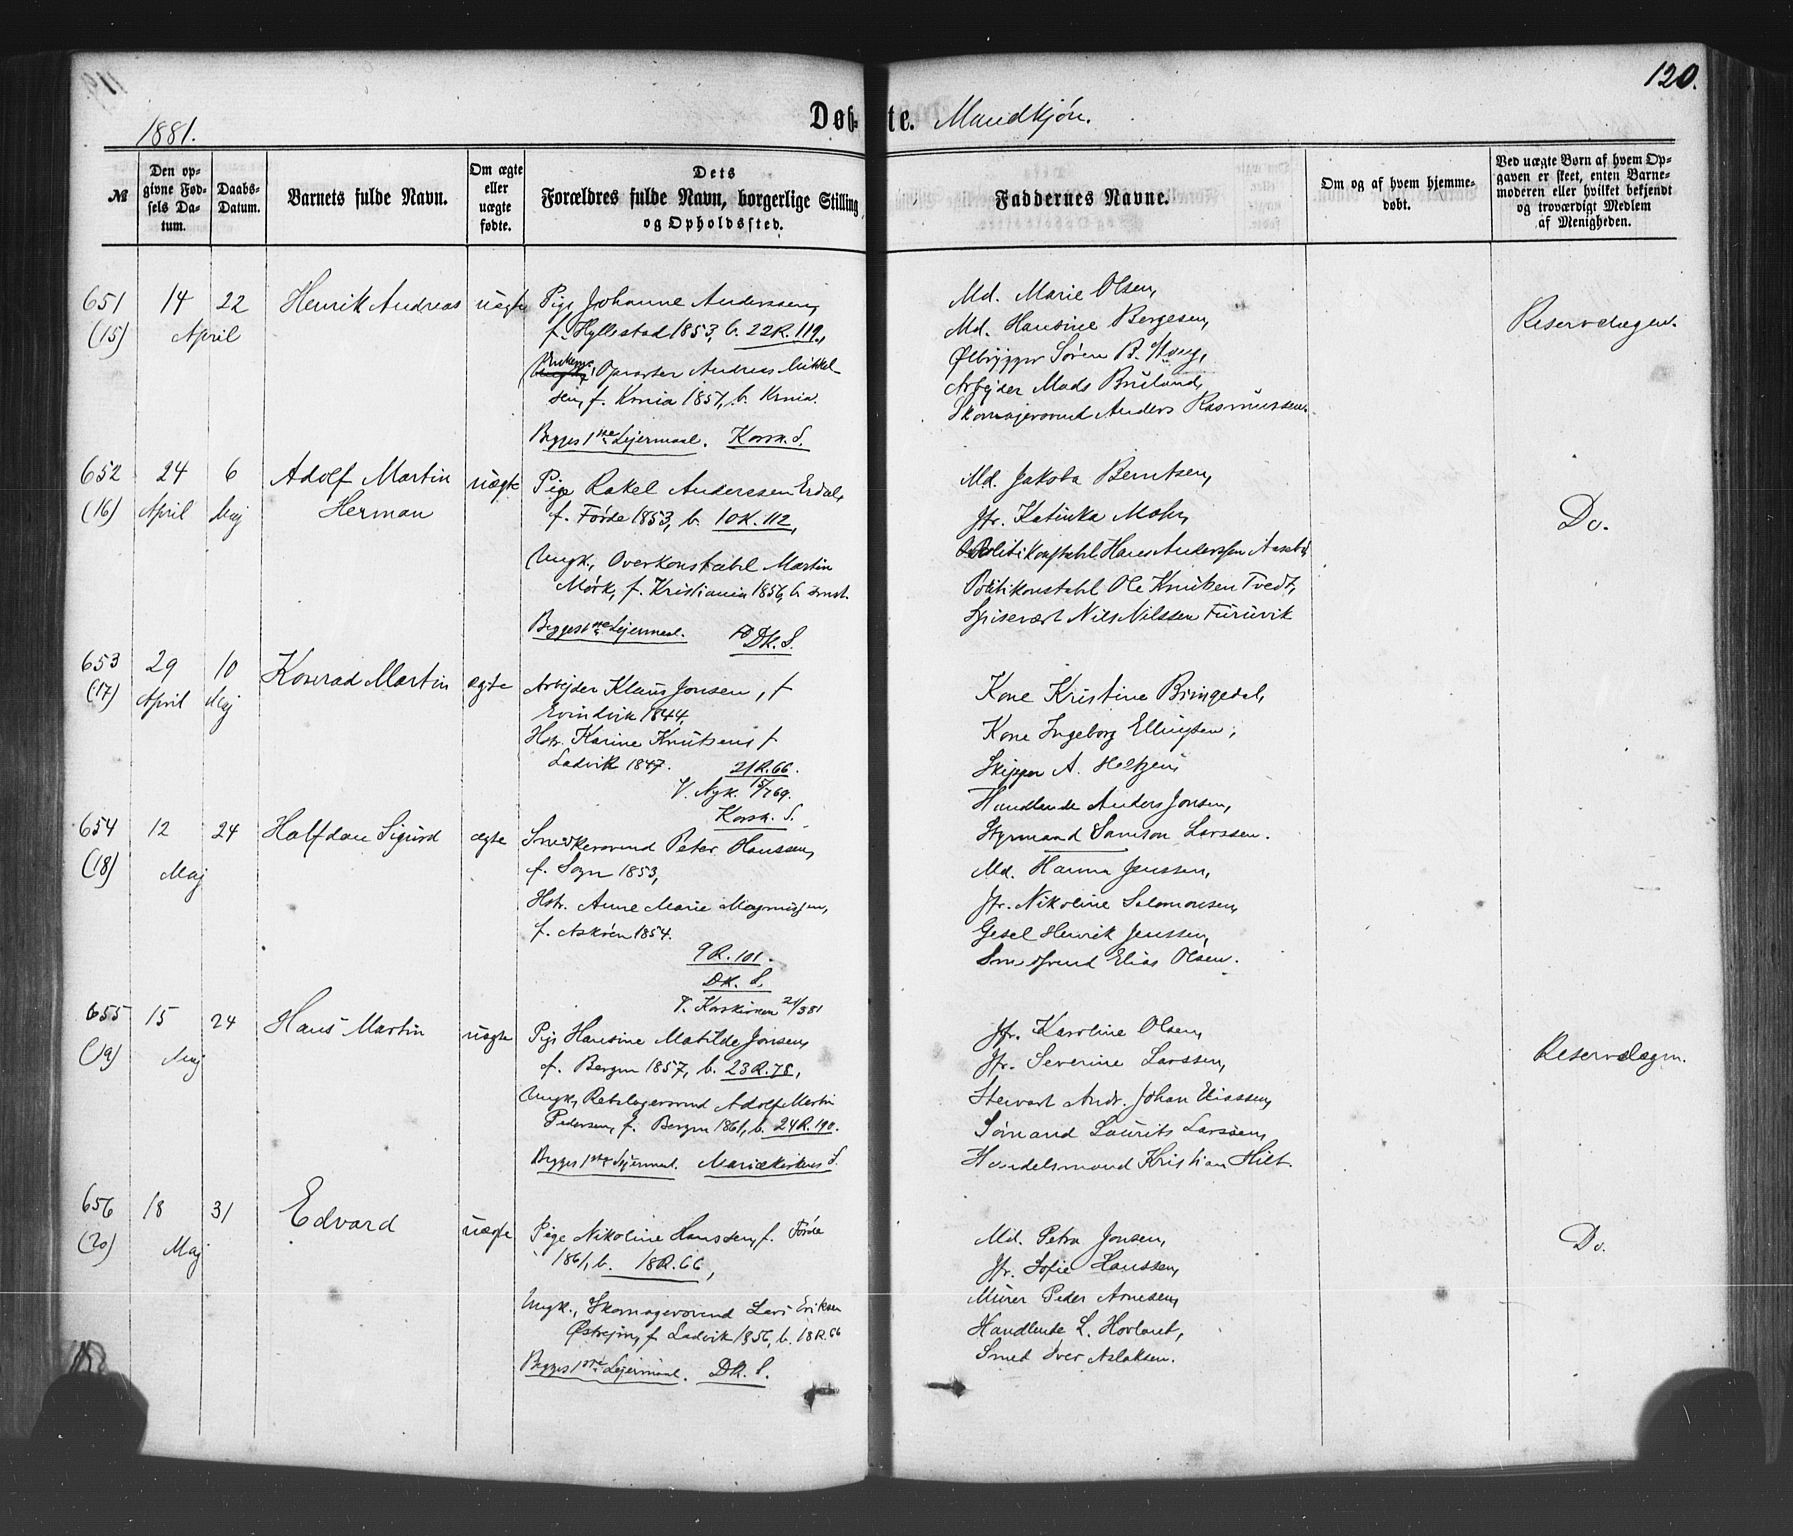 120.
1881.
Døb- te. Mandkjøn.
№
Den opgivne Fødsels Datum.
Daabs-Datum.
Barnets fulde Navn.
Om ægte eller uægte fødte.
Dets Forældres fulde Navn, borgerlige Stilling og Opholdssted.
Faddernes Navne.
Om og af hvem hjemmedøbt.
Ved uægte Børn af hvem Opgaven er skeet, enten Barnemoderen eller hvilket bekjendt og troværdigt Medlem af Menigheden.
651 14 22 Henrik Andreas uægte
(15) April
Pige Johanne Anderssen,
f. Hyllestad 1853, b. 22 R. 119,
Operatør Andreas Mikkel-
sen, f. Krnia 1857, b. Krnia.
Begges 1ste Lejermaal. Korsk. S.
Md. Marie Olsen,
Md. Hansine Bergesen,
Ølbrygger Søren B.
Arbejder Mads
Skomagersvend Anders Rasmussen.
Reservelægen.
652 24 6 Adolf Martin uægte
(16) April Maj Herman
Pige Rakel Anderssen Erdal,
f. Førde 1853, b. 10 R. 112,
Ungk., Overkonstabel Martin
Mørk, f. Kristiania 1856, b.
Begges 1ste Lejermaal. Dk. S.
Md. Jakoba Berntsen,
Jfr. Katinka Mohr,
Politikonstabel Hans Anderssen
Politikonstabel Ole Knutsen Tvedt,
Spisevært Nils Nilssen Furuvik
Do.
653 29 10 Konrad Martin ægte
(17) April Maj
Arbejder Klaus Jonsen, f.
Evindvik 1844,
Hstr. Karine Knutsen f.
Ladvik 1847. 21 R. 66.
V. Nyk.
Korsk. S.
Kone Kristine Bringedal,
Kone Ingeborg Ellingsen,
Skipper A.
Handlende Anders Jonsen,
Styrmand Samson Larssen.
654 12 24 Halfdan Sigurd ægte
(18) Maj
Snedkersvend Peter Hanssen,
f. Sogn 1853,
Hstr. Anne Marie Magnussen,
f. Askøen 1854.
9 R. 101.
Dk. S.
V. Korskirken 21/3 81
Md. Hanna Jenssen,
Jfr. Nikoline Salomonsen,
Gesel Henrik Jenssen,
Smedsvend Elias Olsen.
655 15 24 Hans Martin uægte
(19) Maj
Pige Hansine Matilde Jonsen,
f. Bergen 1857, b. 23 R. 78,
Ungk., Rebslagersvend Adolf Martin
Pedersen, f. Bergen 1861, b. 24 R. 190.
Begges 1ste Lejermaal. Mariekirkens S.
Jfr. Karoline Olsen,
Jfr. Severine Larssen,
Stewart Andr. Johan
Sømand Laurits Larssen,
Handelsmand Kristian Hilt.
Reservelægen.
656 18 31 Edvard uægte
(20) Maj
Pige Nikoline Hanssen, f. Førde
1861, b. 18 R. 66,
Ungk., Skomagersvend Lars Eriksen
f. Ladvik 1856, b. 18 R. 66
Begges 1ste Lejermaal. Dk. S.
Md. Petra Jonsen,
Jfr. Sofie Hanssen,
Murer Peder Arnesen,
Handlende L. Hovland,
Smed Iver Aslaksen.
Do.